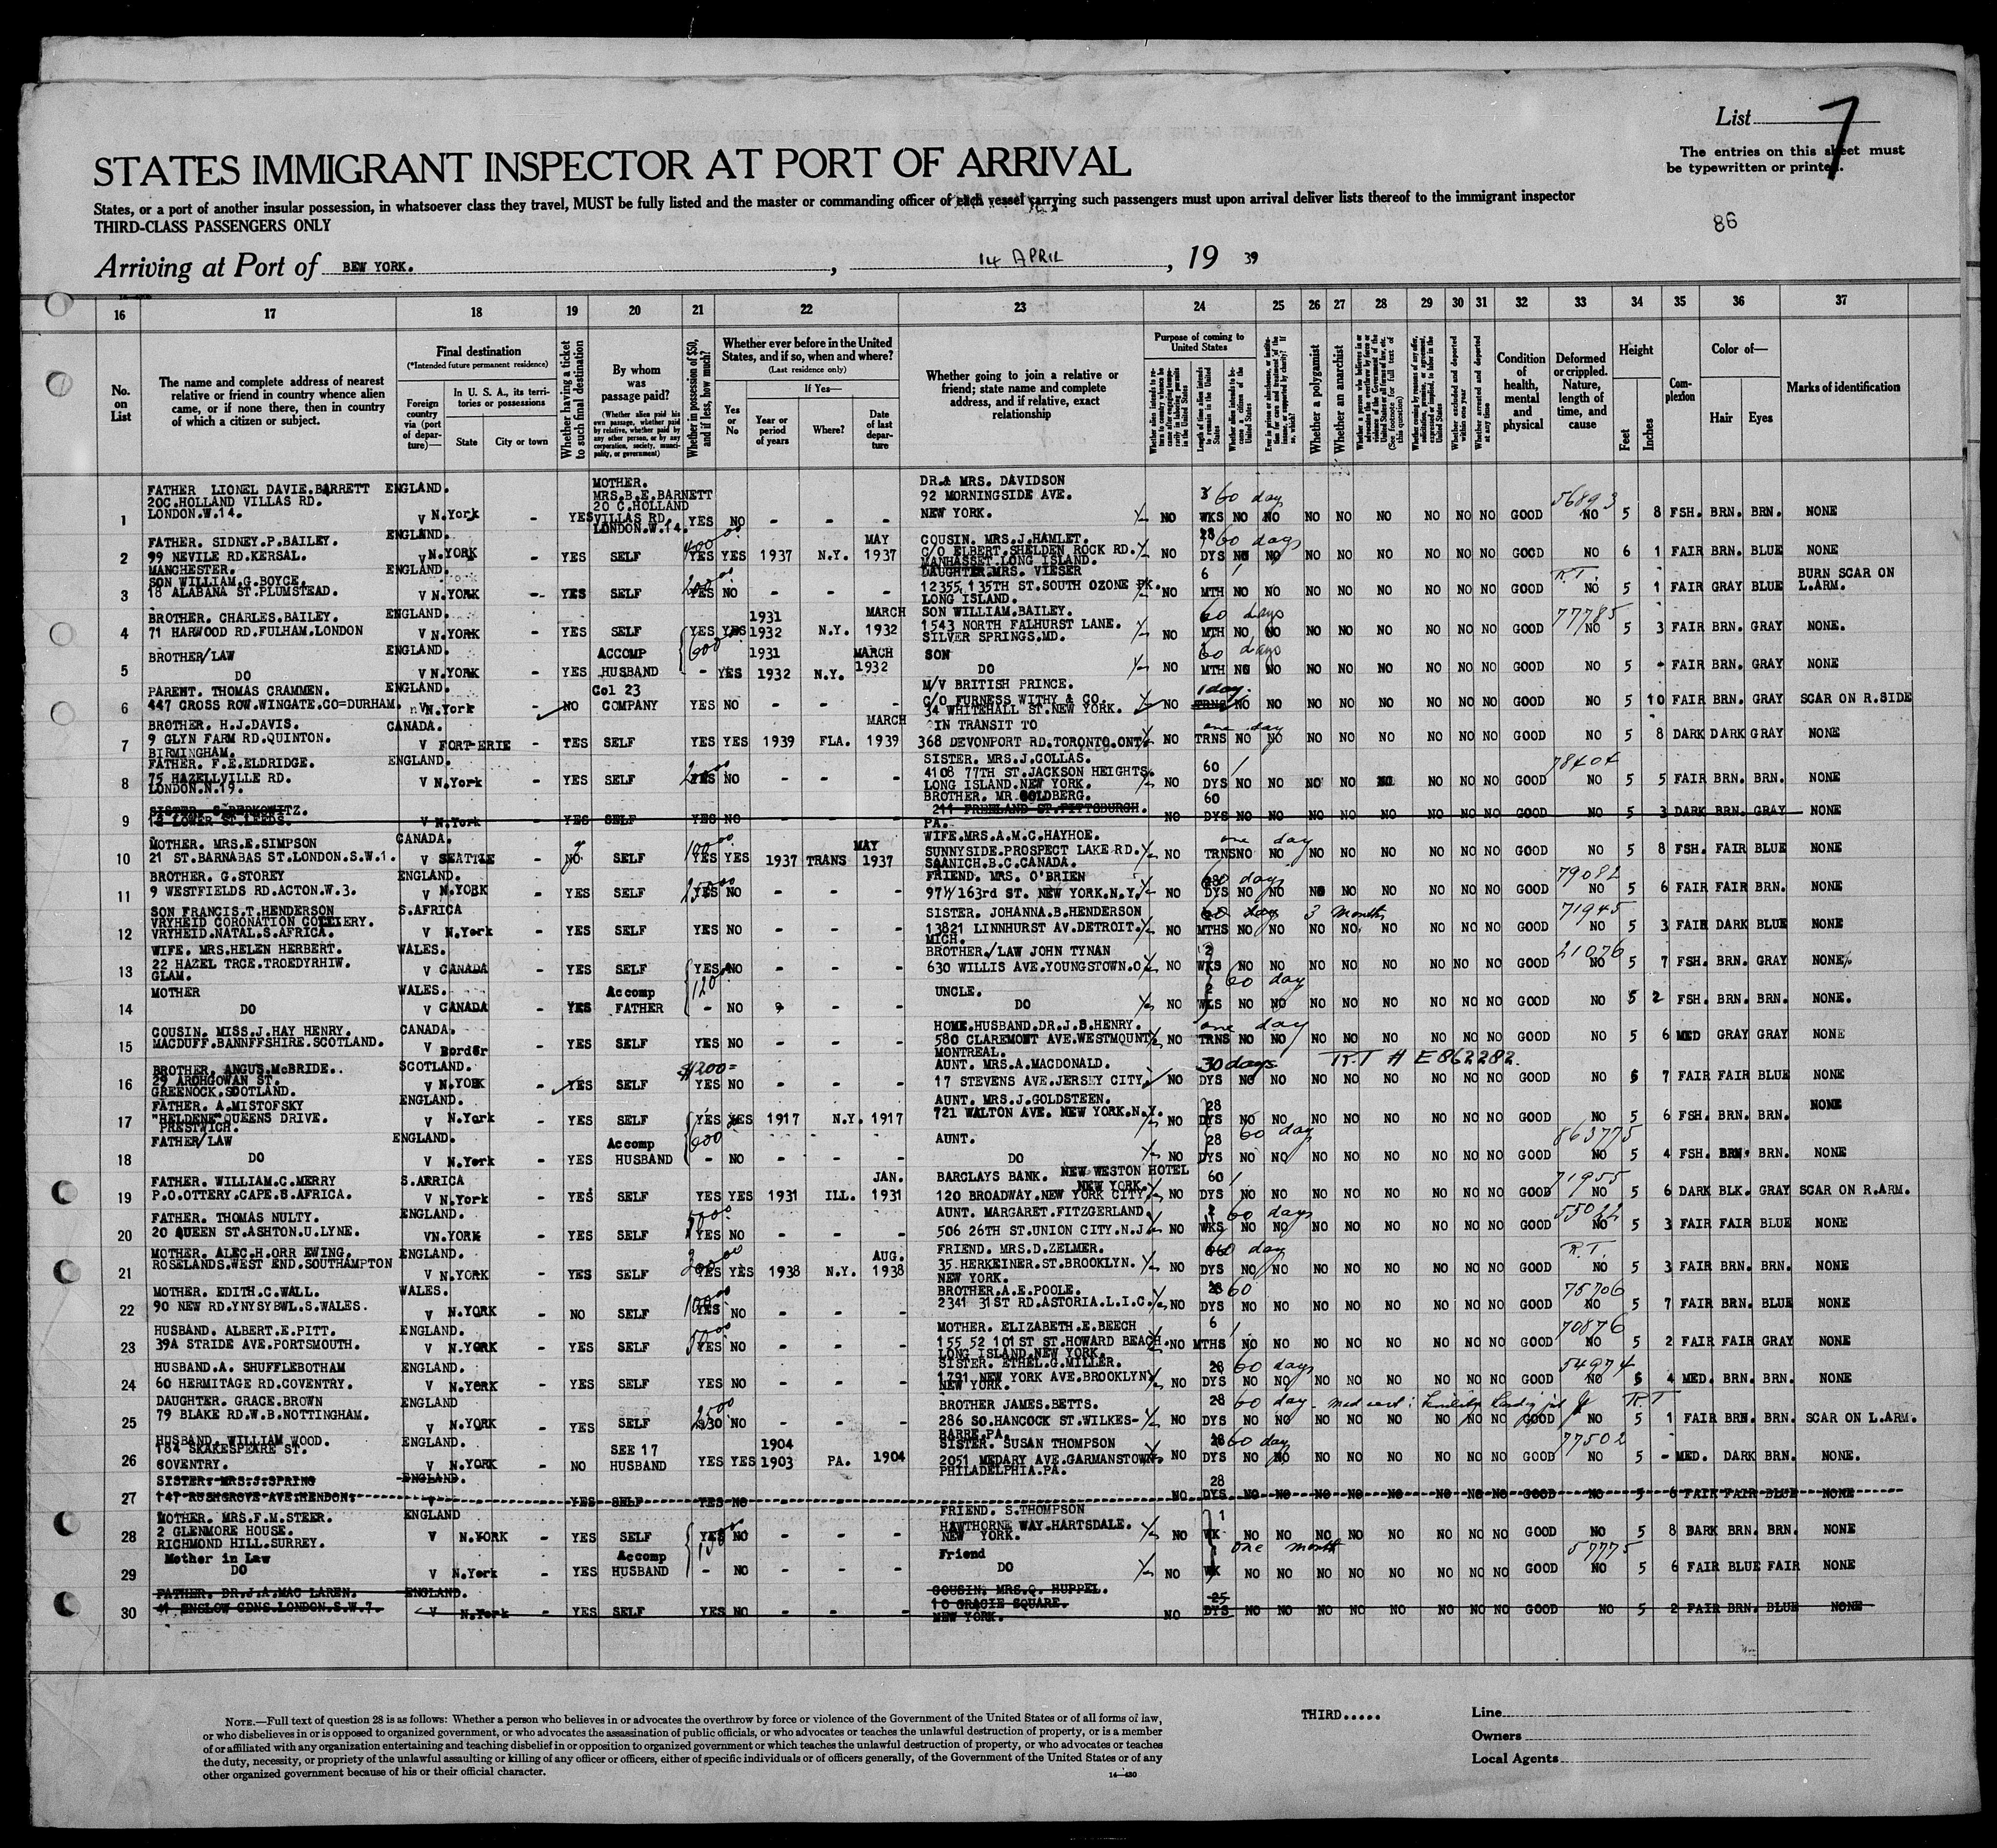 List 7
The entries on this sheet must
be typewritten or printed.
STATES IMMIGRANT INSPECTOR AT PORT OF ARRIVAL
States, or a port of another insular possession, in whatsoever class they travel, MUST be fully listed and the master or commanding officer of each vessel carrying such passengers must upon arrival deliver lists thereof to the immigrant inspector
THIRD-CLASS PASSENGERS ONLY
86
Arriving at Port of BEW YORK. , 14 APRIL , 19 39
16 17 18 19 20 21 22 23 24 25 26 27 28 29 30 31 32 33 34 35 36 37
No. on List
The name and complete address of nearest relative or friend in country whence alien came, or if none there, then in country of which a citizen or subject.
Final destination
(*Intended future permanent residence)
Foreign country via (port of departure)—
In U. S. A., its territories or possessions
State
City or town
Whether having a ticket to such final destination
By whom was passage paid?
(Whether alien paid his own passage, whether paid by relative, whether paid by any other person, or by any corporation, society, municipality, or government)
Whether in possession of $50, and if less, how much?
Whether ever before in the United States, and if so, when and where?
(Last residence only)
If Yes—
Yes or No
Year or period of years
Where?
Date of last departure
Whether going to join a relative or friend; state name and complete address, and if relative, exact relationship
Purpose of coming to United States
Length of time alien intends to remain in the United States
Whether a polygamist
Whether an anarchist
Condition of health, mental and physical
Deformed or crippled. Nature, length of time, and cause
Height
Feet
Inches
Complexion
Color of—
Hair
Eyes
Marks of identification
1 FATHER LIONEL DAVIE.BARRETT ENGLAND. MOTHER. DR.& MRS. DAVIDSON
20C.HOLLAND VILLAS RD. MRS.B.E.BARNETT 92 MORNINGSIDE AVE. 60 day 56893
LONDON.W.14. V N.York - YES 20 C.HOLLAND VILLAS RD. LONDON.W.14. YES NO - - - NEW YORK. NO WKS NO NO NO NO NO NO NO NO GOOD NO 5 8 FSH. BRN. BRN. NONE
2 FATHER. SIDNEY.P.BAILEY. ENGLAND. MAY COUSIN. MRS.J.HAMLET. 28 60 days
99 NEVILE RD.KERSAL. V N.YORK - YES SELF YES YES 1937 N.Y. 1937 C/O ELBERT.SHELDEN ROCK RD. NO DYS NO NO NO NO NO NO NO NO GOOD NO 6 1 FAIR BRN. BLUE NONE
MANCHESTER. MANHASSET.LONG ISLAND.
3 SON WILLIAM.G.BOYCE. ENGLAND. DAUGHTER.MRS. VIESER 6 R.T. BURN SCAR ON
18 ALABANA ST.PLUMSTEAD. V N.YORK - YES SELF YES NO - - - 12355,135TH ST.SOUTH OZONE PK. NO MTH NO NO NO NO NO NO NO NO GOOD NO 5 1 FAIR GRAY BLUE L.ARM.
LONG ISLAND.
4 BROTHER. CHARLES.BAILEY. ENGLAND. 1931 MARCH SON WILLIAM.BAILEY. 60 days 77785
71 HARWOOD RD.FULHAM.LONDON V N.YORK - YES SELF YES YES 1932 N.Y. 1932 1543 NORTH FALHURST LANE. NO MTH NO NO NO NO NO NO NO NO GOOD NO 5 3 FAIR BRN. GRAY NONE.
SILVER SPRINGS.MD.
5 BROTHER/LAW ENGLAND. ACCOMP 600 1931 MARCH SON 60 days
DO V N.YORK - YES HUSBAND - YES 1932 N.Y. 1932 DO NO MTH NO NO NO NO NO NO NO NO GOOD NO 5 - FAIR BRN. GRAY NONE
6 PARENT. THOMAS CRAMMEN. ENGLAND. Col 23 M/V BRITISH PRINCE. 1 day.
447 CROSS ROW.WINGATE.CO=DURHAM. V N.York - NO COMPANY YES NO - - - C/O FURNESS WITHY & CO. NO TRNS NO NO NO NO NO NO NO NO GOOD NO 5 10 FAIR BRN. GRAY SCAR ON R.SIDE
34 WHITEHALL ST.NEW YORK.
7 BROTHER. H.J.DAVIS. CANADA. MARCH IN TRANSIT TO one day
9 GLYN FARM RD.QUINTON. V FORT-ERIE - YES SELF YES YES 1939 FLA. 1939 368 DEVONFORT RD.TORONTO.ONT. NO TRNS NO NO NO NO NO NO NO NO GOOD NO 5 8 DARK DARK GRAY NONE
BIRMINGHAM.
8 FATHER. F.E.ELDRIDGE. ENGLAND. SISTER. MRS.J.COLLAS. 60 78404
75 HAZELLVILLE RD. V N.York - YES SELF YES NO - - - 4108 77TH ST.JACKSON HEIGHTS. NO DYS NO NO NO NO NO NO NO NO GOOD NO 5 5 FAIR BRN. BRN. NONE
LONDON.N.19. LONG ISLAND.NEW YORK.
9 SISTER. S.BERKOWITZ. BROTHER. MR.GOLDBERG. 60
12 LOWER ST.LEEDS. V N.York - YES SELF YES NO - - - 211 FREELAND ST.PITTSBURGH. PA. NO DYS NO NO NO NO NO NO NO NO GOOD NO 5 3 DARK BRN. GRAY NONE
10 MOTHER. MRS.E.SIMPSON CANADA. MAY WIFE.MRS.A.M.C.HAYHOE. one day
21 ST.BARNABAS ST.LONDON.S.W.1. V SEATTLE - NO SELF YES YES 1937 TRANS 1937 SUNNYSIDE.PROSPECT LAKE RD. NO TRNS NO NO NO NO NO NO NO NO GOOD NO 5 8 FSH. FAIR BLUE NONE
SAANICH.B.C.CANADA.
11 BROTHER. G.STOREY ENGLAND. FRIEND. MRS. O'BRIEN 60 days 79082
9 WESTFIELDS RD.ACTON.W.3. V N.YORK - YES SELF YES NO - - - 971/163rd ST. NEW YORK.N.Y. NO DYS NO NO NO NO NO NO NO NO GOOD NO 5 6 FAIR FAIR BRN. NONE
12 SON FRANCIS.T.HENDERSON S.AFRICA SISTER. JOHANNA.B.HENDERSON 3 months 71945
VRYHEID CORONATION COLLIERY. V N.York - YES SELF YES NO - - - 13821 LINNHURST AV.DETROIT. NO MTHS NO NO NO NO NO NO NO NO GOOD NO 5 3 FAIR DARK BLUE NONE
VRYHEID.NATAL.S.AFRICA. MICH.
13 WIFE. MRS.HELEN HERBERT. WALES. BROTHER./LAW JOHN TYNAN 2 21076
22 HAZEL TRCE.TROEDYRHIW. V CANADA - YES SELF YES NO - - - 630 WILLIS AVE.YOUNGSTOWN.O NO WKS NO NO NO NO NO NO NO NO GOOD NO 5 7 FSH. BRN. GRAY NONE
GLAM.
14 MOTHER WALES. Accomp 120 UNCLE. 2 60 day
DO V CANADA - YES FATHER - NO - - DO NO WKS NO NO NO NO NO NO NO NO GOOD NO 5 2 FSH. BRN. BRN. NONE.
15 COUSIN. MISS.J.HAY HENRY. CANADA. HOME.HUSBAND.DR.J.S.HENRY. one day
MACDUFF.BANNFFSHIRE.SCOTLAND. V Border YES SELF YES NO - - - 580 CLAREMONT AVE.WESTMOUNT NO TRNS NO NO NO NO NO NO NO NO GOOD NO 5 6 MED GRAY GRAY NONE
MONTREAL.
16 BROTHER. ANGUS.McBRIDE.. SCOTLAND. $200= AUNT. MRS.A.MACDONALD. 30 days R.T # E 862282.
29 ARCHGOWAN ST. V N.YORK - YES SELF YES NO - - - 17 STEVENS AVE.JERSEY CITY. NO DYS NO NO NO NO NO NO NO NO GOOD NO 5 7 FAIR FAIR BLUE NONE
GREENOCK.SCOTLAND.
17 FATHER. A.MISTOFSKY ENGLAND. AUNT. MRS.J.GOLDSTEEN. 28
"HELDENE"QUEENS DRIVE. V N.York - YES SELF YES YES 1917 N.Y. 1917 721 WALTON AVE. NEW YORK.N.Y. NO DYS NO NO NO NO NO NO NO NO GOOD NO 5 6 FSH. BRN. BRN. NONE
PRESTWICH.
18 FATHER/LAW ENGLAND. Accomp 600 AUNT. 28 60 day 863775
DO V N.York - YES HUSBAND - NO - - - DO NO DYS NO NO NO NO NO NO NO NO GOOD NO 5 4 FSH. BRN. BRN. NONE
19 FATHER. WILLIAM.C.MERRY S.AFRICA JAN. BARCLAYS BANK. NEW WESTON HOTEL NEW YORK. 60 71955
P.O.OTTERY.CAPE.S.AFRICA. V N.York - YES SELF YES YES 1931 ILL. 1931 120 BROADWAY.NEW YORK CITY NO DYS NO NO NO NO NO NO NO NO GOOD NO 5 6 DARK BLK. GRAY SCAR ON R.ARM.
20 FATHER. THOMAS NULTY. ENGLAND. AUNT. MARGARET.FITZGERLAND. 2 60 days 55022
20 QUEEN ST.ASHTON.U.LYNE. VN.YORK - YES SELF YES NO - - - 506 26TH ST.UNION CITY.N.J. NO WKS NO NO NO NO NO NO NO NO GOOD NO 5 3 FAIR FAIR BLUE NONE
21 MOTHER. ALEC.H.ORR EWING. ENGLAND. AUG. FRIEND. MRS.D.ZELMER. 60 day R.T.
ROSELANDS.WEST END.SOUTHAMPTON V N.YORK - YES SELF YES YES 1938 N.Y. 1938 35.HERKEINER.ST.BROOKLYN. NO DYS NO NO NO NO NO NO NO NO GOOD NO 5 3 FAIR BRN. BRN. NONE
NEW YORK.
22 MOTHER. EDITH.C.WALL. WALES. BROTHER.A.E.POOLE. 28 60 75706
90 NEW RD.YNYSYBWL.S.WALES. V N.YORK - NO SELF YES NO - - - 2341 31ST RD.ASTORIA.L.I.C. NO DYS NO NO NO NO NO NO NO NO GOOD NO 5 7 FAIR BRN. BLUE NONE
23 HUSBAND. ALBERT.E.PITT. ENGLAND. MOTHER. ELIZABETH.E.BEECH 6 70876
39A STRIDE AVE.PORTSMOUTH. V N.YORK - YES SELF YES NO - - - 155 52 101ST ST.HOWARD BEACH. NO MTHS NO NO NO NO NO NO NO NO GOOD NO 5 2 FAIR FAIR GRAY NONE
LONG ISLAND.NEW YORK.
24 HUSBAND.A. SHUFFLEBOTHAM ENGLAND. SISTER. ETHEL.G.MILLER. 28 60 days 54974
60 HERMITAGE RD.COVENTRY. V N.YORK - YES SELF YES NO - - - 1791 NEW YORK AVE.BROOKLYN NO DYS NO NO NO NO NO NO NO NO GOOD NO 5 4 MED. BRN. BRN. NONE
NEW YORK.
25 DAUGHTER. GRACE.BROWN ENGLAND BROTHER JAMES.BETTS. 28 60 day - med cert: R.T
79 BLAKE RD.W.B.NOTTINGHAM. V N.YORK - YES SELF NO - - - 286 SO.HANCOCK ST.WILKES- NO DYS NO NO NO NO NO NO NO NO GOOD NO 5 1 FAIR BRN. BRN. SCAR ON L.ARM.
BARRE.PA.
26 HUSBAND. WILLIAM WOOD. ENGLAND. SEE 17 1904 SISTER. SUSAN THOMPSON 28 60 day 77502
184 SKAKESPEARE ST. V N.YORK - NO HUSBAND YES YES 1903 PA. 1904 2051 MEDARY AVE.GARMANSTOWN NO DYS NO NO NO NO NO NO NO NO GOOD NO 5 - MED. DARK BRN. NONE.
COVENTRY. PHILADELPHIA.PA.
27 SISTER. MRS.J.SPRING ENGLAND. 28
147 RUSHGROVE AVE.HENDON. V YES SELF YES NO NO DYS NO NO NO NO NO NO NO NO GOOD NO 5 6 FAIR FAIR BLUE NONE
28 MOTHER. MRS.F.M.STEER. ENGLAND FRIEND. S.THOMPSON 1
2 GLENMORE HOUSE. V N.YORK - YES SELF YES NO - - - HAWTHORNE WAY.HARTSDALE. NO WK NO NO NO NO NO NO NO NO GOOD NO 5 8 DARK BRN. BRN. NONE
RICHMOND HILL.SURREY. NEW YORK.
29 Mother in Law Accomp Friend one month 57775
DO V N.York - YES HUSBAND - NO - - - DO NO WK NO NO NO NO NO NO NO NO GOOD NO 5 6 FAIR BLUE FAIR NONE
30 FATHER. DR.J.A.MAC LAREN. ENGLAND. COUSIN. MRS.Q. HUPPEL. 25
ENGLOW GDNS.LONDON.S.W.7. V N.York - YES SELF YES NO - - - 10 GRACIE SQUARE. NO DYS NO NO NO NO NO NO NO NO GOOD NO 5 2 FAIR BRN. BLUE NONE
NEW YORK.
NOTE.—Full text of question 28 is as follows: Whether a person who believes in or advocates the overthrow by force or violence of the Government of the United States or of all forms of law,
or who disbelieves in or is opposed to organized government, or who advocates the assassination of public officials, or who advocates or teaches the unlawful destruction of property, or is a member
of or affiliated with any organization entertaining and teaching disbelief in or opposition to organized government or which teaches the unlawful destruction of property, or who advocates or teaches
the duty, necessity, or propriety of the unlawful assaulting or killing of any officer or officers, either of specific individuals or of officers generally, of the Government of the United States or of any
other organized government because of his or their official character.
14—430
THIRD.....
Line
Owners
Local Agents